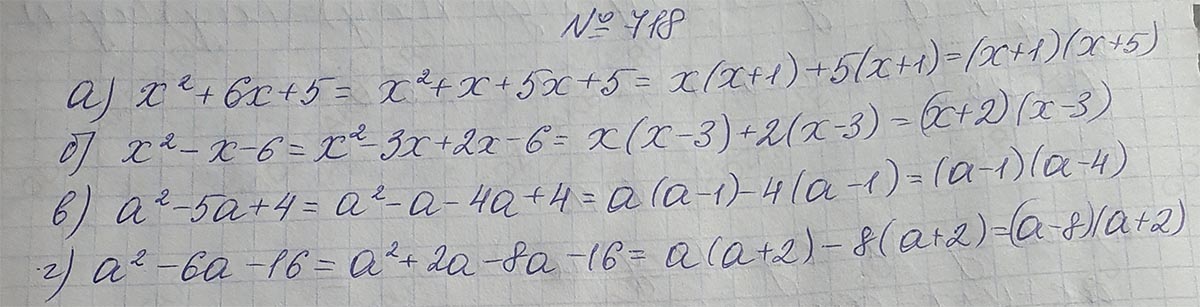 № 718
а) x² + 6x + 5 = x² + x + 5x + 5 = x(x+1) + 5(x+1) = (x+1)(x+5)
б) x² - x - 6 = x² - 3x + 2x - 6 = x(x-3) + 2(x-3) = (x+2)(x-3)
в) a² - 5a + 4 = a² - a - 4a + 4 = a(a-1) - 4(a-1) = (a-1)(a-4)
г) a² - 6a - 16 = a² + 2a - 8a - 16 = a(a+2) - 8(a+2) = (a-8)(a+2)